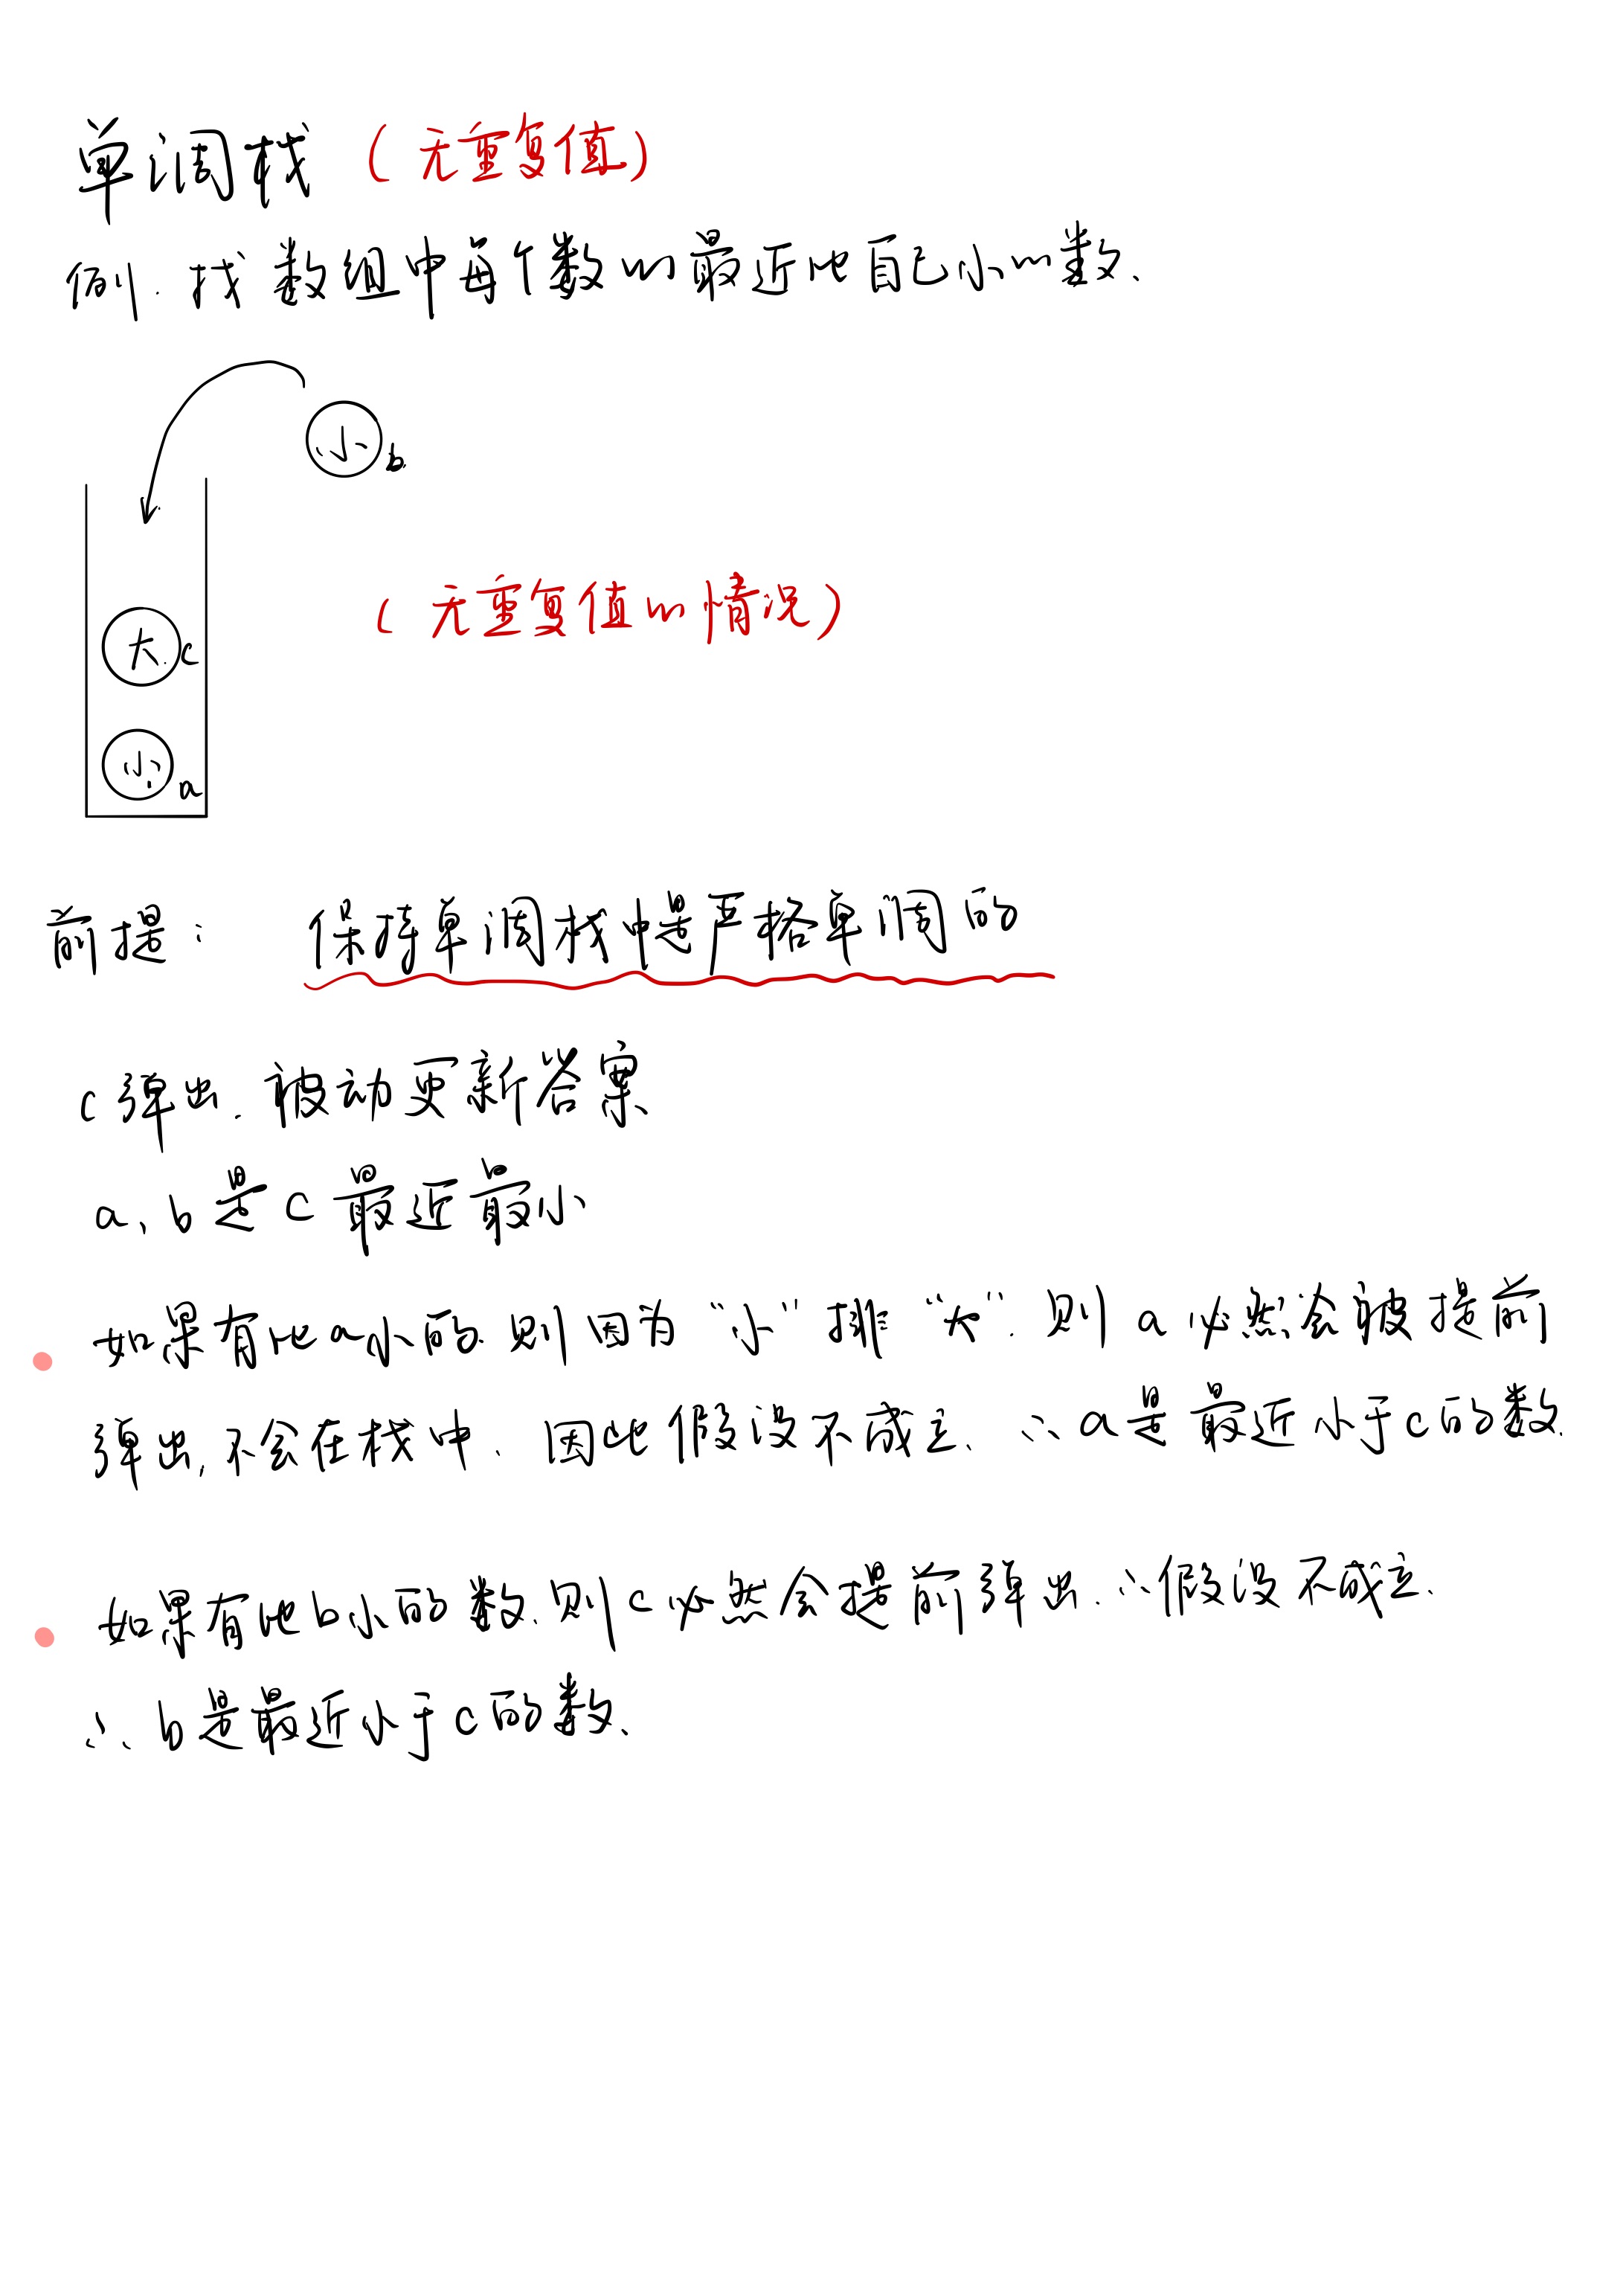 单调栈 (无重复值)
例. 找数组中每个数的最近比自己小的数.
小 b
(无重复值的情况)
大 c
小 a
前提: 保持单调栈中是严格单调的
c弹出. 被动更新答案
a、b是c最近最小
如果有比a小的. 则因为“小”排“大”. 则a必然会被提前
弹出, 不会在栈中. 因此假设不成立、 ∴a是最近小于c的数.
如果有比b小的数、则c必然会提前弹出. ∵假设不成立、
∴b是最近小于c的数、